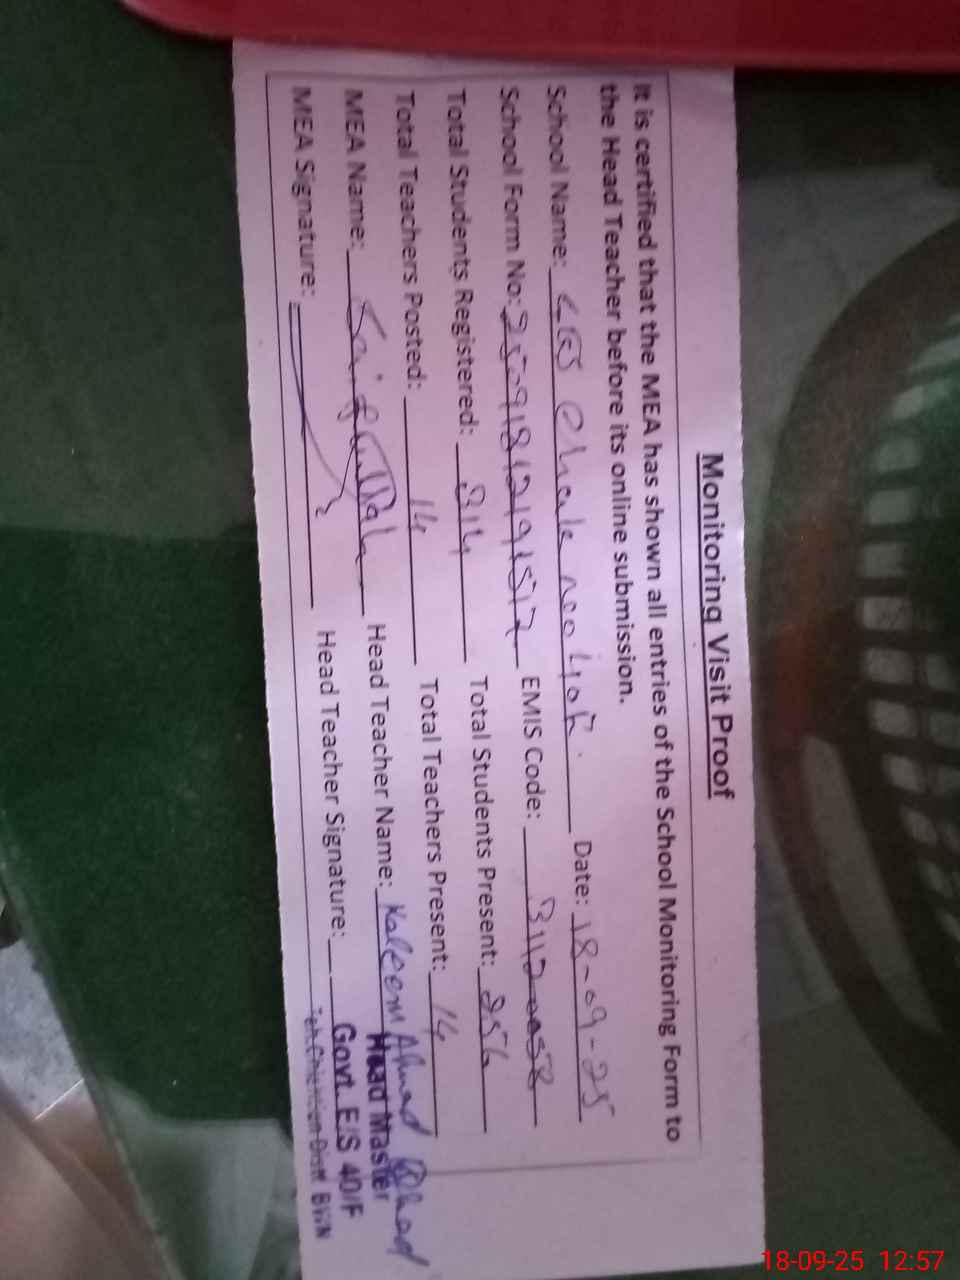 Monitoring Visit Proof
It is certified that the MEA has shown all entries of the School Monitoring Form to
the Head Teacher before its online submission.
School Name: Date: 18-09-25
School Form No: EMIS Code:
Total Students Registered: 314 Total Students Present: 256
Total Teachers Posted: 14 Total Teachers Present: 14
MEA Name: Head Teacher Name: Kaleem Ahmad
Head Master
MEA Signature: Head Teacher Signature: Govt. E/S 40/F
18-09-25 12:57